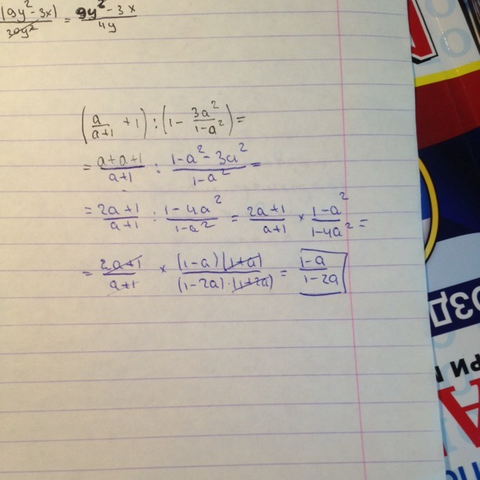 (9y² - 3x)/30y² = 9y² - 3x/4y
(a/a+1 + 1) : (1 - 3a²/1-a²) =
= a+a+1/a+1 : 1-a²-3a²/1-a² =
= 2a+1/a+1 : 1-4a²/1-a² = 2a+1/a+1 × 1-a²/1-4a² =
= 2a+1/a+1 × (1-a)(1+a)/(1-2a)·(1+2a) = 1-a/1-2a